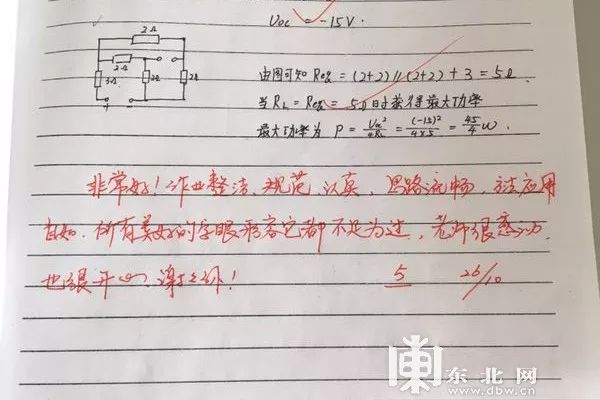 Uoc = -15V.
2Ω
2Ω
3Ω
2Ω
2Ω
由图可知 Req = (2+2)//(2+2) + 3 = 5Ω
当 RL = Req = 5Ω 时获得最大功率
最大功率为 P = Uoc²/4RL = (-15)²/4×5 = 45/4 W.
非常好！作业整洁、规范、认真，思路流畅，方法应用
自如，所有美好的字眼形容它都不足为过，老师很感动，
也很开心，谢
5 26/10
東北网
www.dbw.cn